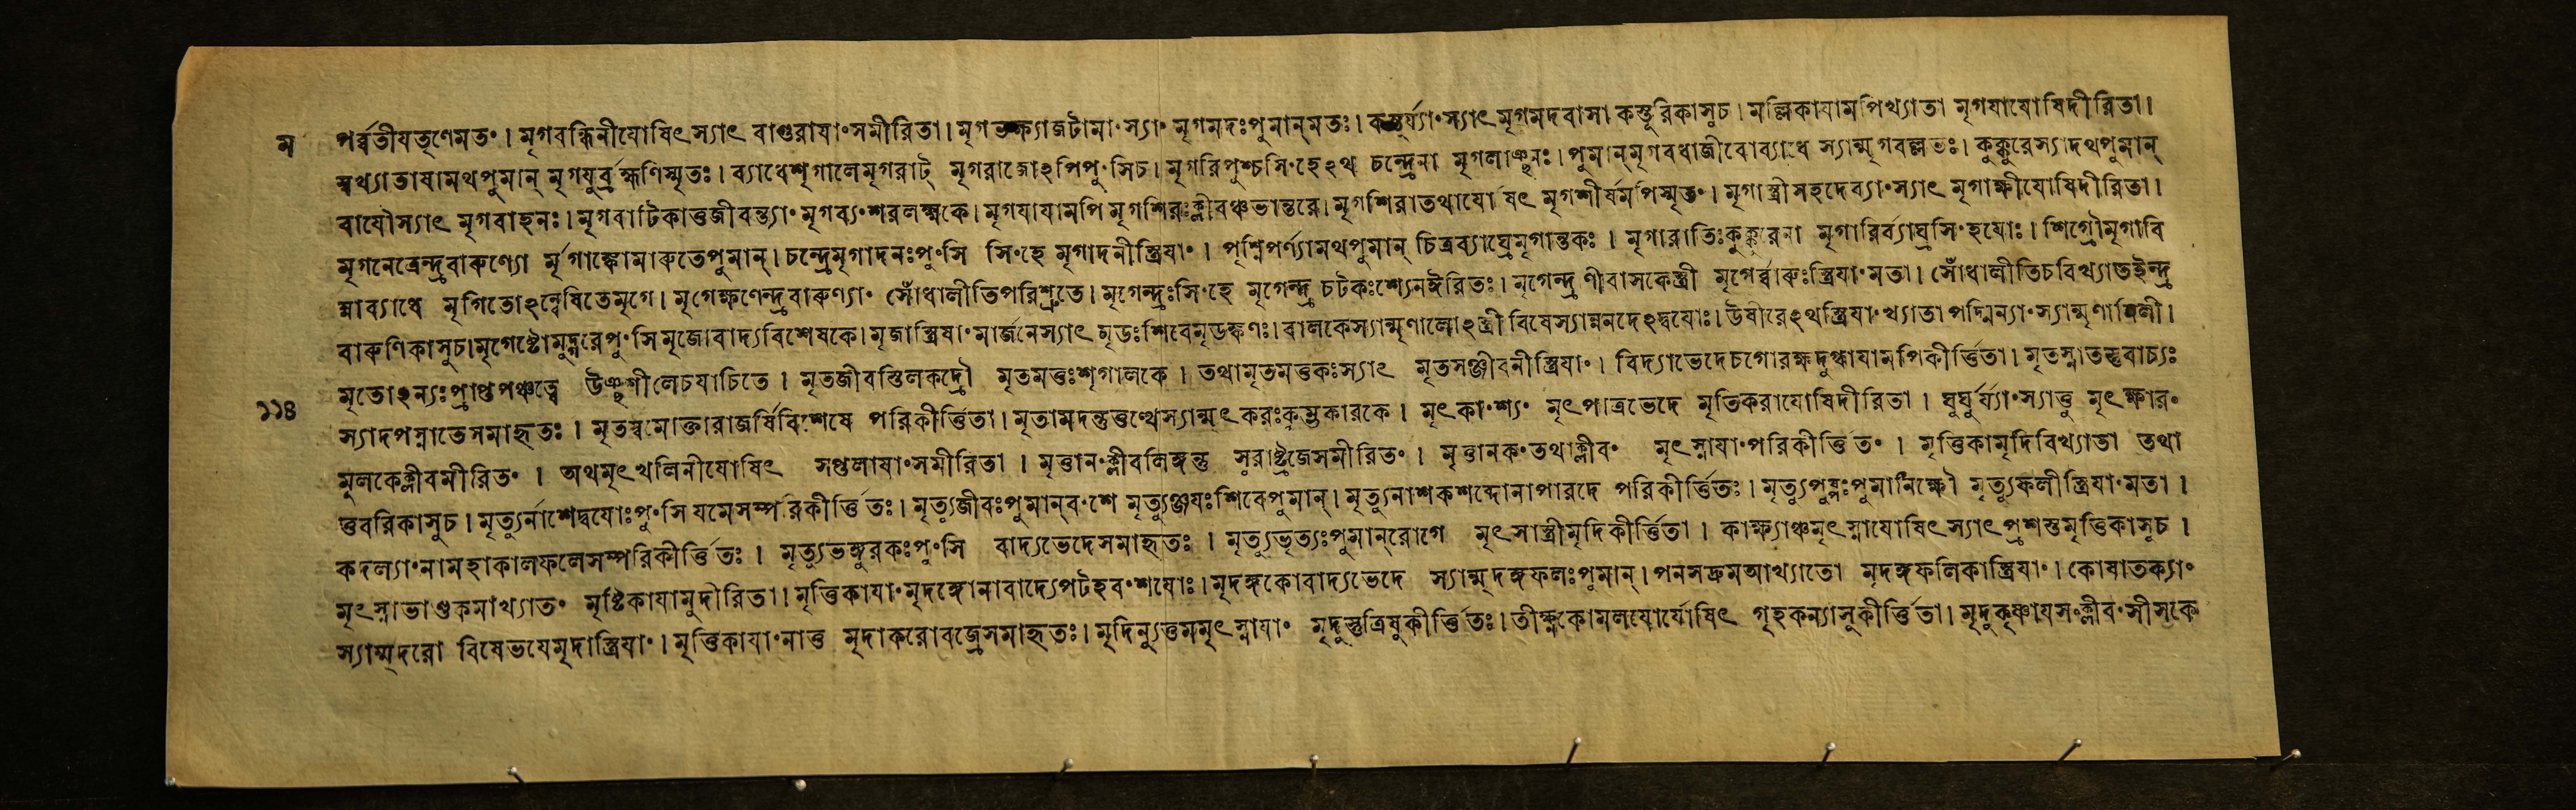 ম পর্ব্বতীযতৃণেমত॰ । মৃগবন্ধিনীযোষিৎ স্যাৎ বাগুরাযা॰সমীরিতা। মৃগভক্ষ্যাজটামা॰স্যা॰ মৃগমদঃপুমান্মতঃ। কস্তূর্য্যা॰স্যাৎ মৃগমদবাসা কস্তুরিকাসুচ। মল্লিকাযামপিখ্যাতা মৃগযাযোষিদীরিতা।
স্বথ্যাভাষামথপুমান্ মৃগযুর্ব্রহ্মণিস্মৃতঃ। ব্যাধেশৃগালেমৃগরাট্ মৃগরাজোঽপিপু॰সিচ। মৃগরিপুশ্চসি॰হেঽথ চন্দ্রেনা মৃগলাঞ্ছনঃ। পুমান্মৃগবধাজীবোব্যাধে স্যান্মৃগবল্লভঃ। কুক্কুরেস্যাদথপুমান্
বাযৌস্যাৎ মৃগবাহনঃ। মৃগবাটিকাত্তুজীবন্ত্যা॰ মৃগব্য॰শরলক্ষ্যকে। মৃগযাযামপি মৃগশিরঃক্লীবঞ্চভান্তরে। মৃগশিরাতথাযোষিৎ মৃগশীর্ষমপিস্মৃত॰। মৃগাস্ত্রীসহদেব্যা॰স্যাৎ মৃগাক্ষীযোষিদীরিতা।
মৃগনেত্রেন্দ্রবারুণ্যো মৃর্গাঙ্কোমারুতেপুমান্। চন্দ্রেমৃগাদনঃপু॰সি সি॰হে মৃগাদনীস্ত্রিযা॰ । পৃশ্নিপর্ণ্যামথপুমান্ চিত্রব্যাঘ্রেমৃগান্তকঃ । মৃগারাতিঃকুক্কুরেনা মৃগারির্ব্যাঘ্রসি॰হযোঃ। শিগ্রৌমৃগাবি
ন্নাব্যাধে মৃগিতোঽন্বেষিতেমৃগে। মৃগেক্ষণেন্দ্রবারুণ্যা॰ সোঁধালীতিপরিশ্রুতে। মৃগেন্দ্রঃসি॰হে মৃগেন্দ্র চটকঃশ্যেনঈরিতঃ। মৃগেন্দ্রণীবাসকেস্ত্রী মৃগের্ব্বারুঃস্ত্রিযা॰মতা। সোঁধালীতিচবিখ্যাতইন্দ্র
বারুণিকাসুচ।মৃগেষ্টোমুদ্গরেপু॰সিমৃজোবাদ্যবিশেষকে। মৃজাস্ত্রিযা॰মার্জনেস্যাৎ মৃডঃশিবেমৃডঙ্কণঃ। বালকেস্যান্মৃণালোঽস্ত্রী বিষেস্যান্ননদেঽদ্বযোঃ। উষীরেঽথস্ত্রিযা॰খ্যাতা পদ্মিন্যা॰স্যান্মৃণালিনী।
মৃতোঽন্যঃপ্রাপ্তপঞ্চত্বে উঞ্ছশীলেচযাচিতে । মৃতজীবস্তিলকদ্রৌ মৃতমত্তঃশৃগালকে । তথামৃতমত্তকঃস্যাৎ মৃতসঞ্জীবনীস্ত্রিযা॰। বিদ্যাভেদেচগোরক্ষদুগ্ধাযামপিকীর্ত্তিতা। মৃতস্নাতস্তুবাচ্যঃ
১১৪ স্যাদপস্নাতেসমাহৃতঃ । মৃতস্বমোক্তারাজর্ষিবিশেষে পরিকীর্ত্তিতা। মৃতামদস্তুত্তুত্থেস্যান্মৃৎকরঃকুম্ভকারকে । মৃৎকা॰শ্য॰ মৃৎপাত্রভেদে মৃতিকরাযোষিদীরিতা । ঘুর্ঘুর্য্যা॰স্যাত্তু মৃৎক্ষার॰
মুলকেক্লীবমীরিত॰ । অথমৃৎখলিনীযোষিৎ সপ্তলাযা॰সমীরিতা । মৃত্তান॰ক্লীবলিঙ্গন্তু সুরাষ্ট্রজেসমীরিত॰ । মৃত্তানক॰তথাক্লীব॰ মৃৎস্নাযা॰পরিকীর্ত্তিত॰ । মৃত্তিকামৃদিবিখ্যাতা তথা
ত্তুবরিকাসুচ। মৃত্যুর্নাশেদ্বযোঃপু॰সি যমেসম্পরিকীর্ত্তিতঃ। মৃত্যুজীবঃপুমান্ব॰শে মৃত্যুঞ্জযঃশিবেপুমান্। মৃত্যুনাশকশব্দোনাপারদে পরিকীর্ত্তিতঃ। মৃত্যুপুষ্পঃপুমানিক্ষৌ মৃত্যুফলীস্ত্রিযা॰মতা ।
কদল্যা॰নামহাকালফলেসম্পরিকীর্ত্তিতঃ । মৃত্যুভঙ্গুরকঃপু॰সি বাদ্যভেদেসমাহৃতঃ । মৃত্যুভৃত্যঃপুমান্রোগে মৃৎসাস্ত্রীমৃদিকীর্ত্তিতা । কাক্ষ্যাঞ্চমৃৎস্নাযোষিৎ স্যাৎপ্রশস্তমৃত্তিকাসুচ ।
মৃৎস্নাভাণ্ডকমাখ্যাত॰ মৃষ্টিকাযামুদীরিতা। মৃত্তিকাযা॰মৃদঙ্গোনাবাদ্যেপটহব॰শযোঃ। মৃদঙ্গকোবাদ্যভেদে স্যান্মৃদঙ্গফলঃপুমান্। পনসদ্রুমআখ্যাতো মৃদঙ্গফলিকাস্ত্রিযা॰। কোষাতক্যা॰
স্যান্মৃদরো বিষেভযেমৃদাস্ত্রিযা॰। মৃত্তিকাযা॰নাত্তু মৃদাকরোবজ্রেসমাহৃতঃ। মৃদিন্যুত্তমমৃৎস্নাযা॰ মৃদুস্তুত্রিষুকীর্ত্তিতঃ। তীক্ষ্ণকোমলযোর্যোষিৎ গৃহকন্যাসুকীর্ত্তিতা। মৃদুকৃষ্ণাযস॰ক্লীব॰সীসকে